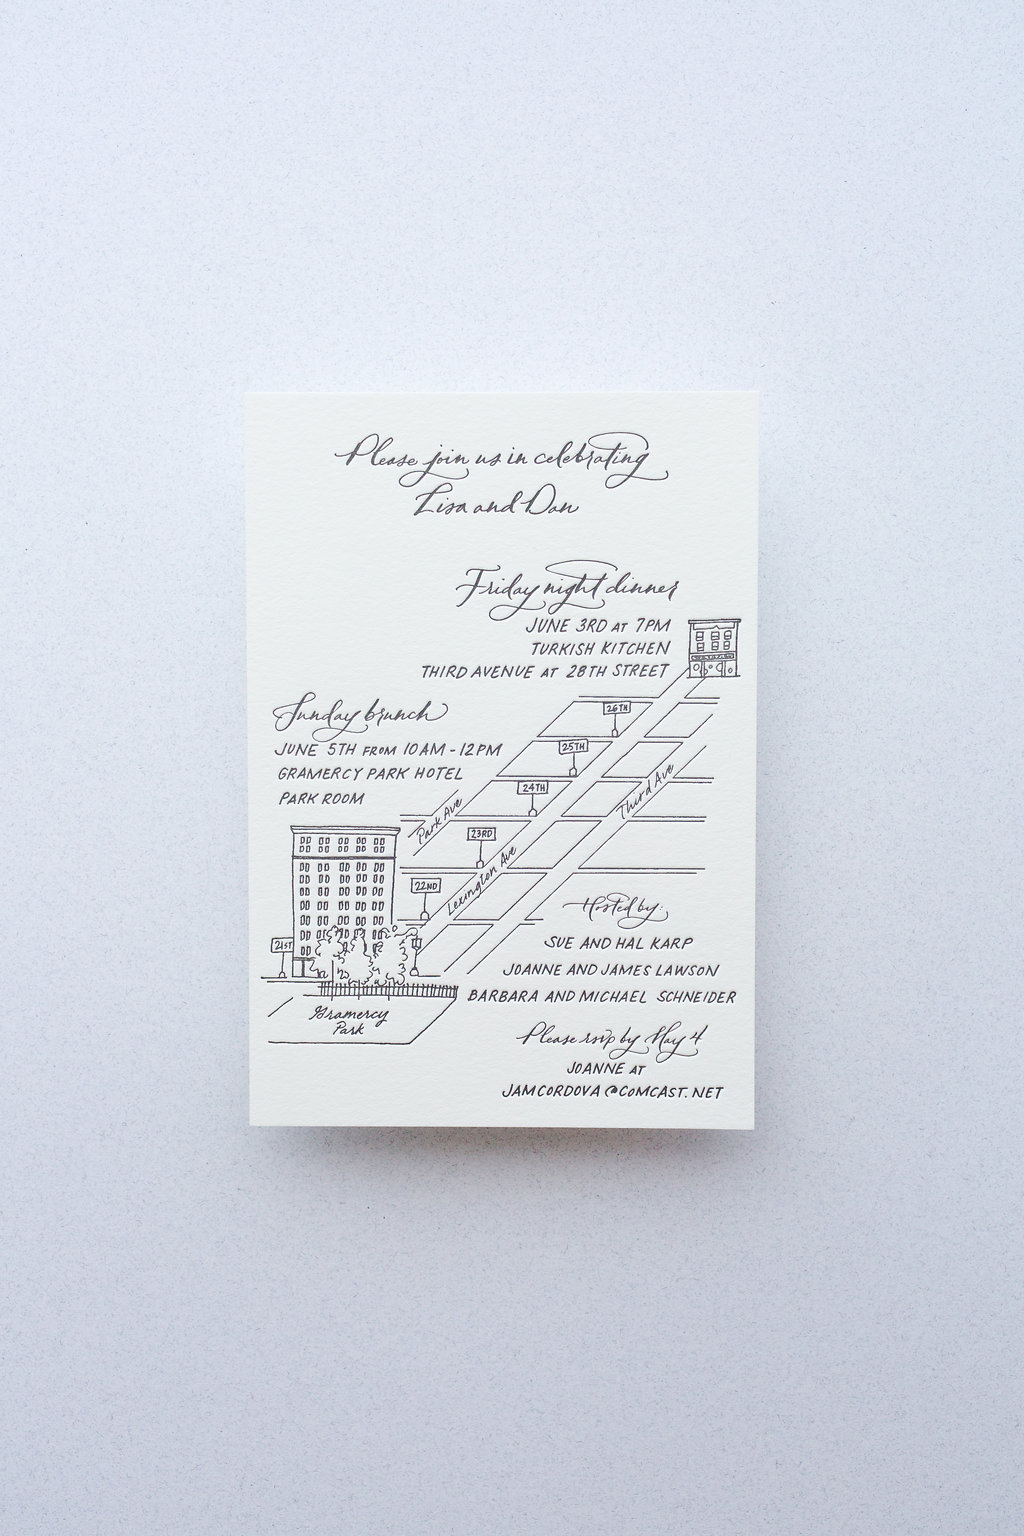 Please join us in celebrating
Lisa and Dan
Friday night dinner
JUNE 3RD AT 7PM
TURKISH KITCHEN
THIRD AVENUE AT 28TH STREET
Sunday brunch
JUNE 5TH FROM 10AM - 12PM
GRAMERCY PARK HOTEL
PARK ROOM
26TH
25TH
24TH
23RD
22ND
21ST
Park Ave
Lexington Ave
Third Ave
Gramercy
Park
Hosted by:
SUE AND HAL KARP
JOANNE AND JAMES LAWSON
BARBARA AND MICHAEL SCHNEIDER
Please rsvp by May 4
JOANNE AT
JAMCORDOVA@COMCAST.NET